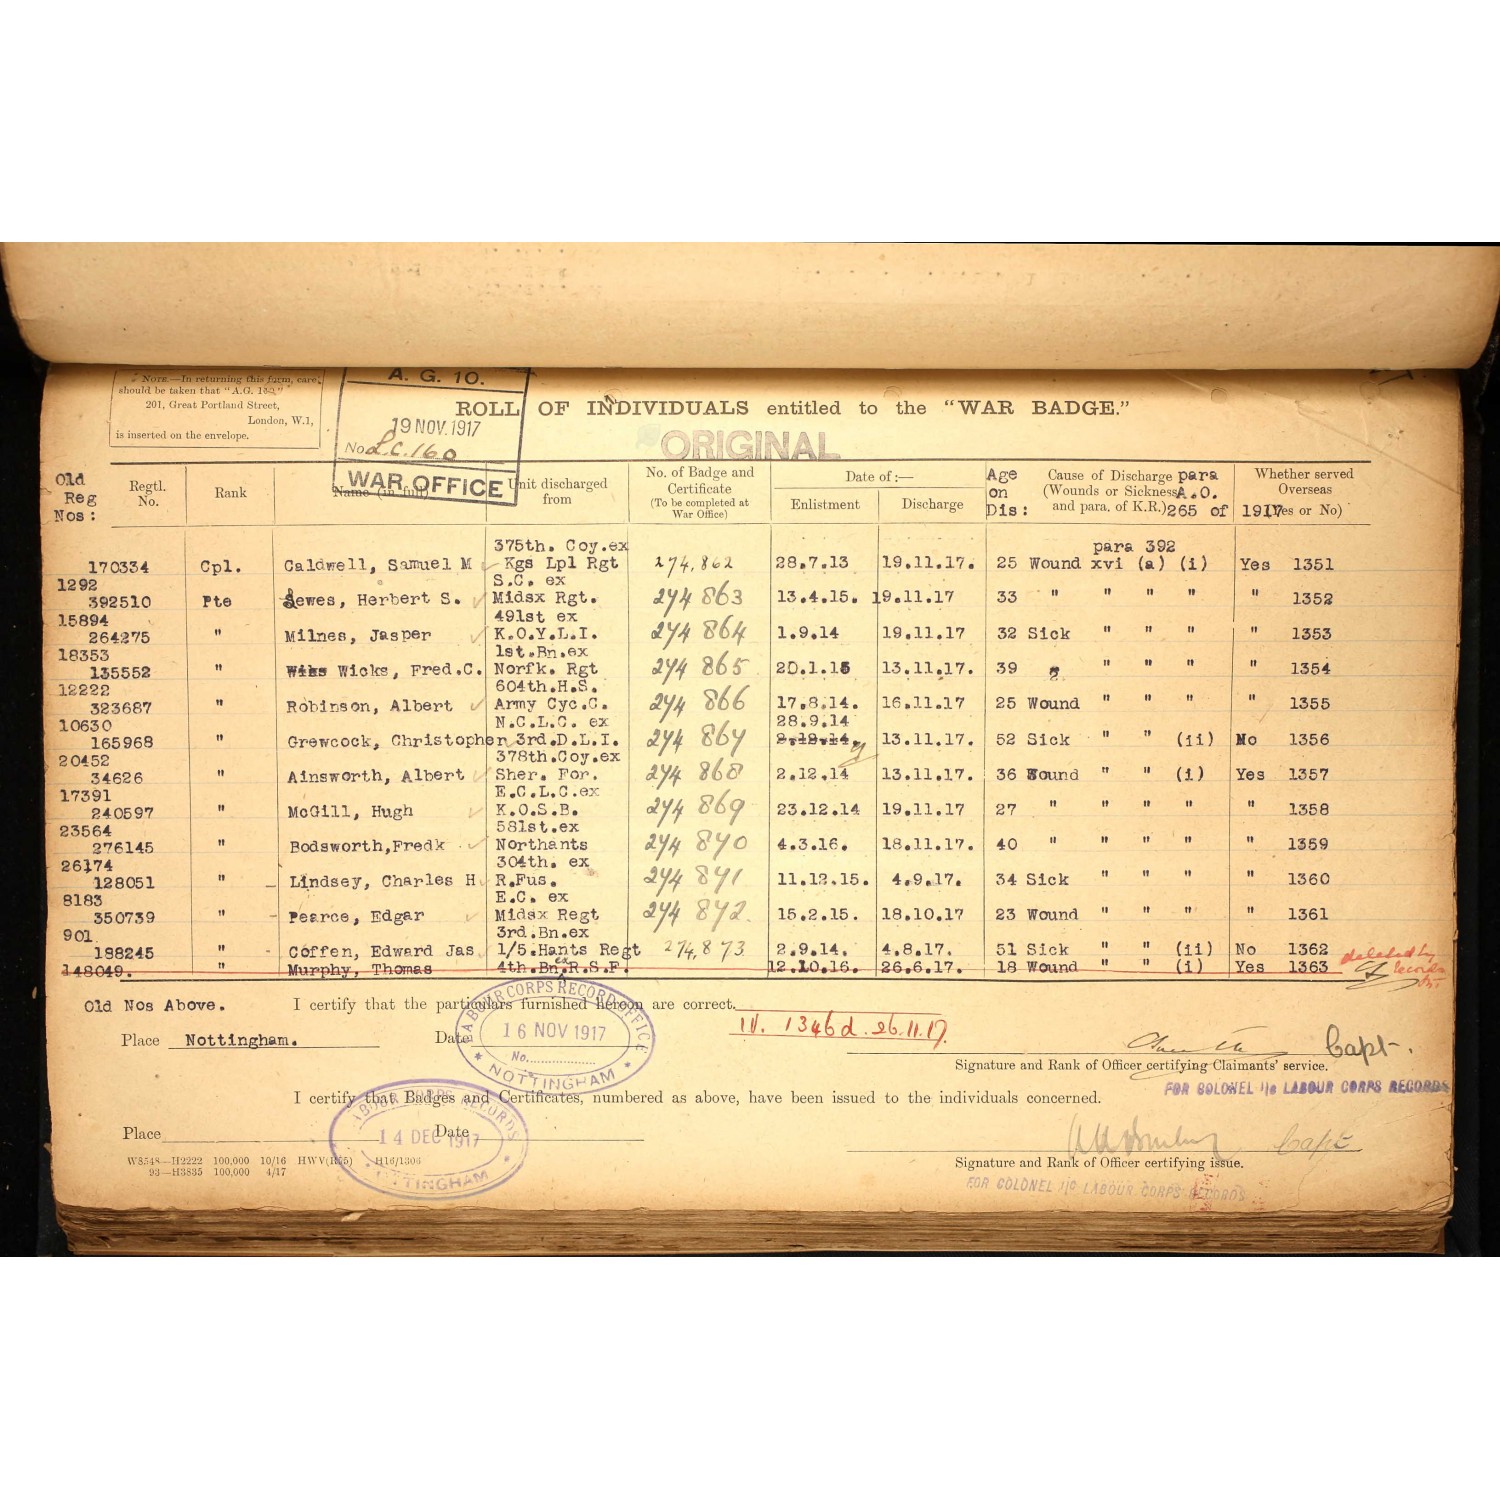 Note.—In returning this form, care
should be taken that "A.G. 10,"
201, Great Portland Street,
London, W.1,
is inserted on the envelope.
A. G. 10.
19 NOV. 1917
No L.C. 160
WAR OFFICE
ROLL OF INDIVIDUALS entitled to the "WAR BADGE."
ORIGINAL
Old Reg Nos: Regtl. No. Rank Name (in full) Unit discharged from No. of Badge and Certificate (To be completed at War Office) Date of:— Enlistment Discharge Age on Dis: Cause of Discharge para (Wounds or Sickness A.O. and para. of K.R.) 265 of 1917 Whether served Overseas (Yes or No)
375th. Coy.ex para 392
170334 Cpl. Caldwell, Samuel M Kgs Lpl Rgt 274,862 28.7.13 19.11.17. 25 Wound xvi (a) (i) Yes 1351
1292 S.C. ex
392510 Pte Sewes, Herbert S. Midsx Rgt. 274 863 13.4.15. 19.11.17 33 " " " " " 1352
15894 491st ex
264275 " Milnes, Jasper K.O.Y.L.I. 274 864 1.9.14 19.11.17 32 Sick " " " " 1353
18353 1st.Bn.ex
135552 " Wicks, Fred.C. Norfk. Rgt 274 865 20.1.15 13.11.17. 39 " " " " " 1354
12222 604th.H.S.
323687 " Robinson, Albert Army Cyc.C. 274 866 17.8.14. 16.11.17 25 Wound " " " " 1355
10630 N.C.L.C. ex 28.9.14
165968 " Grewcock, Christopher 3rd.D.L.I. 274 867 2.12.14. 13.11.17. 52 Sick " " (ii) No 1356
20452 378th.Coy.ex
34626 " Ainsworth, Albert Sher. For. 274 868 2.12.14 13.11.17. 36 Wound " " (i) Yes 1357
17391 E.C.L.C.ex
240597 " McGill, Hugh K.O.S.B. 274 869 23.12.14 19.11.17 27 " " " " " 1358
23564 581st.ex
276145 " Bodsworth,Fredk Northants 274 870 4.3.16. 18.11.17. 40 " " " " " 1359
26174 304th. ex
128051 " Lindsey, Charles H R.Fus. 274 871 11.12.15. 4.9.17. 34 Sick " " " " 1360
8183 E.C. ex
350739 " Pearce, Edgar Midsx Regt 274 872. 15.2.15. 18.10.17 23 Wound " " " " 1361
901 3rd.Bn.ex
188245 " Coffen, Edward Jas 1/5.Hants Regt 274,873 2.9.14. 4.8.17. 51 Sick " " (ii) No 1362
148049. " Murphy, Thomas 4th.Bn ex R.S.F. 12.10.16. 26.6.17. 18 Wound " " (i) Yes 1363 deleted by
records
Old Nos Above. I certify that the particulars furnished hereon are correct.
IV. 1346d. 26.11.17.
Place Nottingham. Date
LABOUR CORPS RECORD OFFICE
16 NOV 1917
No.
NOTTINGHAM
Capt.
Signature and Rank of Officer certifying Claimants' service.
FOR COLONEL I/c LABOUR CORPS RECORDS
I certify that Badges and Certificates, numbered as above, have been issued to the individuals concerned.
LABOUR CORPS RECORDS
14 DEC 1917
NOTTINGHAM
Place Date
Capt
Signature and Rank of Officer certifying issue.
FOR COLONEL I/c LABOUR CORPS RECORDS
W8548—H2222 100,000 10/16 HWV(R55) H16/1306
93—H3835 100,000 4/17